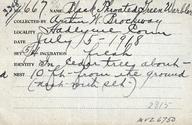 No. 667 NAME Black Throated Green Warbler
COLLECTED BY Arthur W. Brockway
LOCALITY Hadlyme Conn
DATE July 5-1908
SET INCUBATION fresh
IDENTITY
NEST in Cedar tree about
10 ft from the ground
(nest with set)
2815